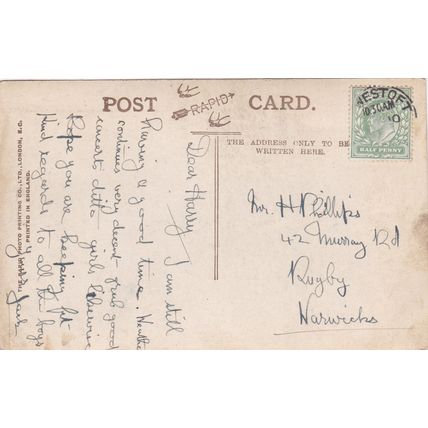 POST CARD.
RAPID
THE ADDRESS ONLY TO BE
WRITTEN HERE.
ESTOFT
10.30AM
10
HALF PENNY
Dear Harry, I am still
having a good time. Weather
continues very decent - grub good
concerts ditto - girls likewise
Hope you are keeping fit
Kind regards to all the boys
Jack
THE RAPID PHOTO PRINTING CO., LTD., LONDON, E.C.
PRINTED IN ENGLAND.
Mr. H Phillips
42 Murray Rd
Rugby
Warwicks